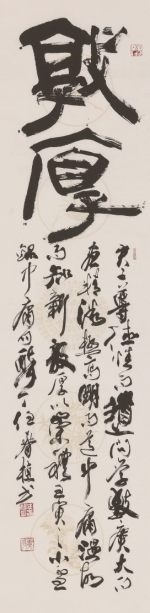 敦厚
君子尊德性而道問學致廣大而
盡精微極高明而道中庸溫故
而知新敦厚以崇禮壬寅之小
錄中庸句